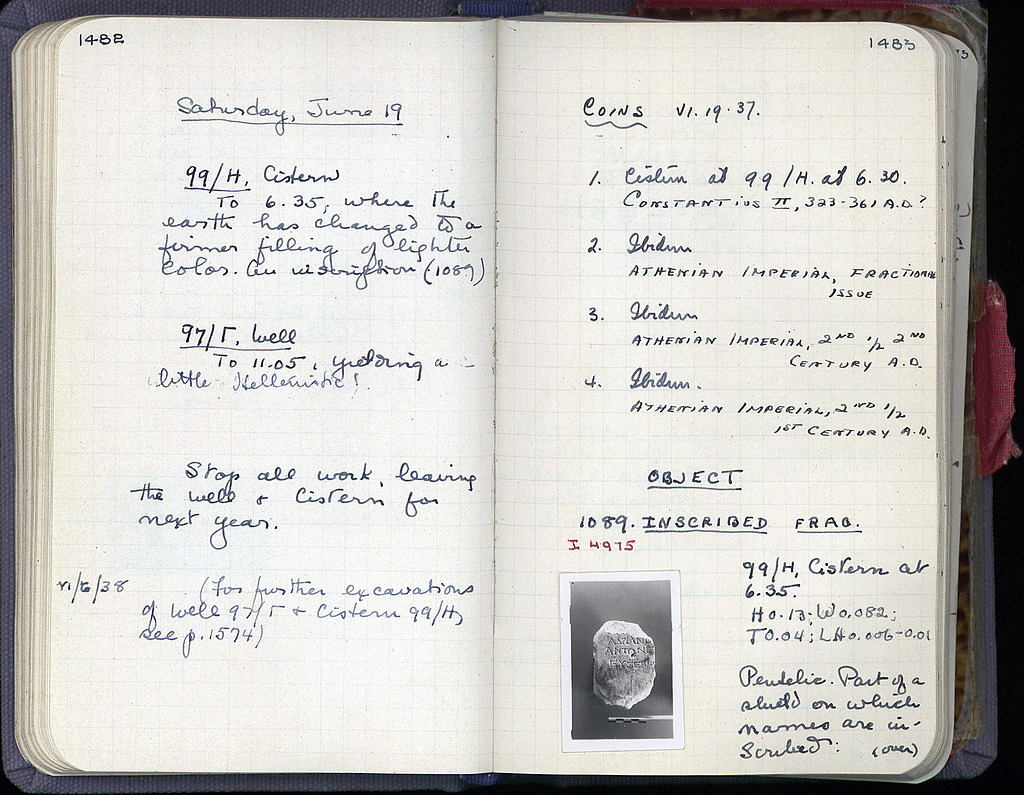 1482
Saturday, June 19
99/H, Cistern
To 6.35, where the
earth has changed to a
firmer filling of lighter
color. An inscription (1089)
97/Γ, Well
To 11.05, yielding a
little Hellenistic!
Stop all work, leaving
the well & Cistern for
next year.
VI/6/38 (For further excavations
of Well 97/Γ & Cistern 99/H,
see p. 1574)
1483
COINS VI.19.37.
1. Cistern at 99/H. at 6.30.
CONSTANTIUS II, 323-361 A.D?
2. Ibidem
ATHENIAN IMPERIAL, FRACTIONAL
ISSUE
3. Ibidem
ATHENIAN IMPERIAL, 2ND 1/2 2ND
CENTURY A.D.
4. Ibidem.
ATHENIAN IMPERIAL, 2ND 1/2
1ST CENTURY A.D.
OBJECT
1089. INSCRIBED FRAG.
I 4975
99/H, Cistern at
6.35.
H0.13; W0.082;
T0.04; LH0.006-0.01
Pentelic. Part of a
shield on which
names are in-
scribed: (over)
ANTON